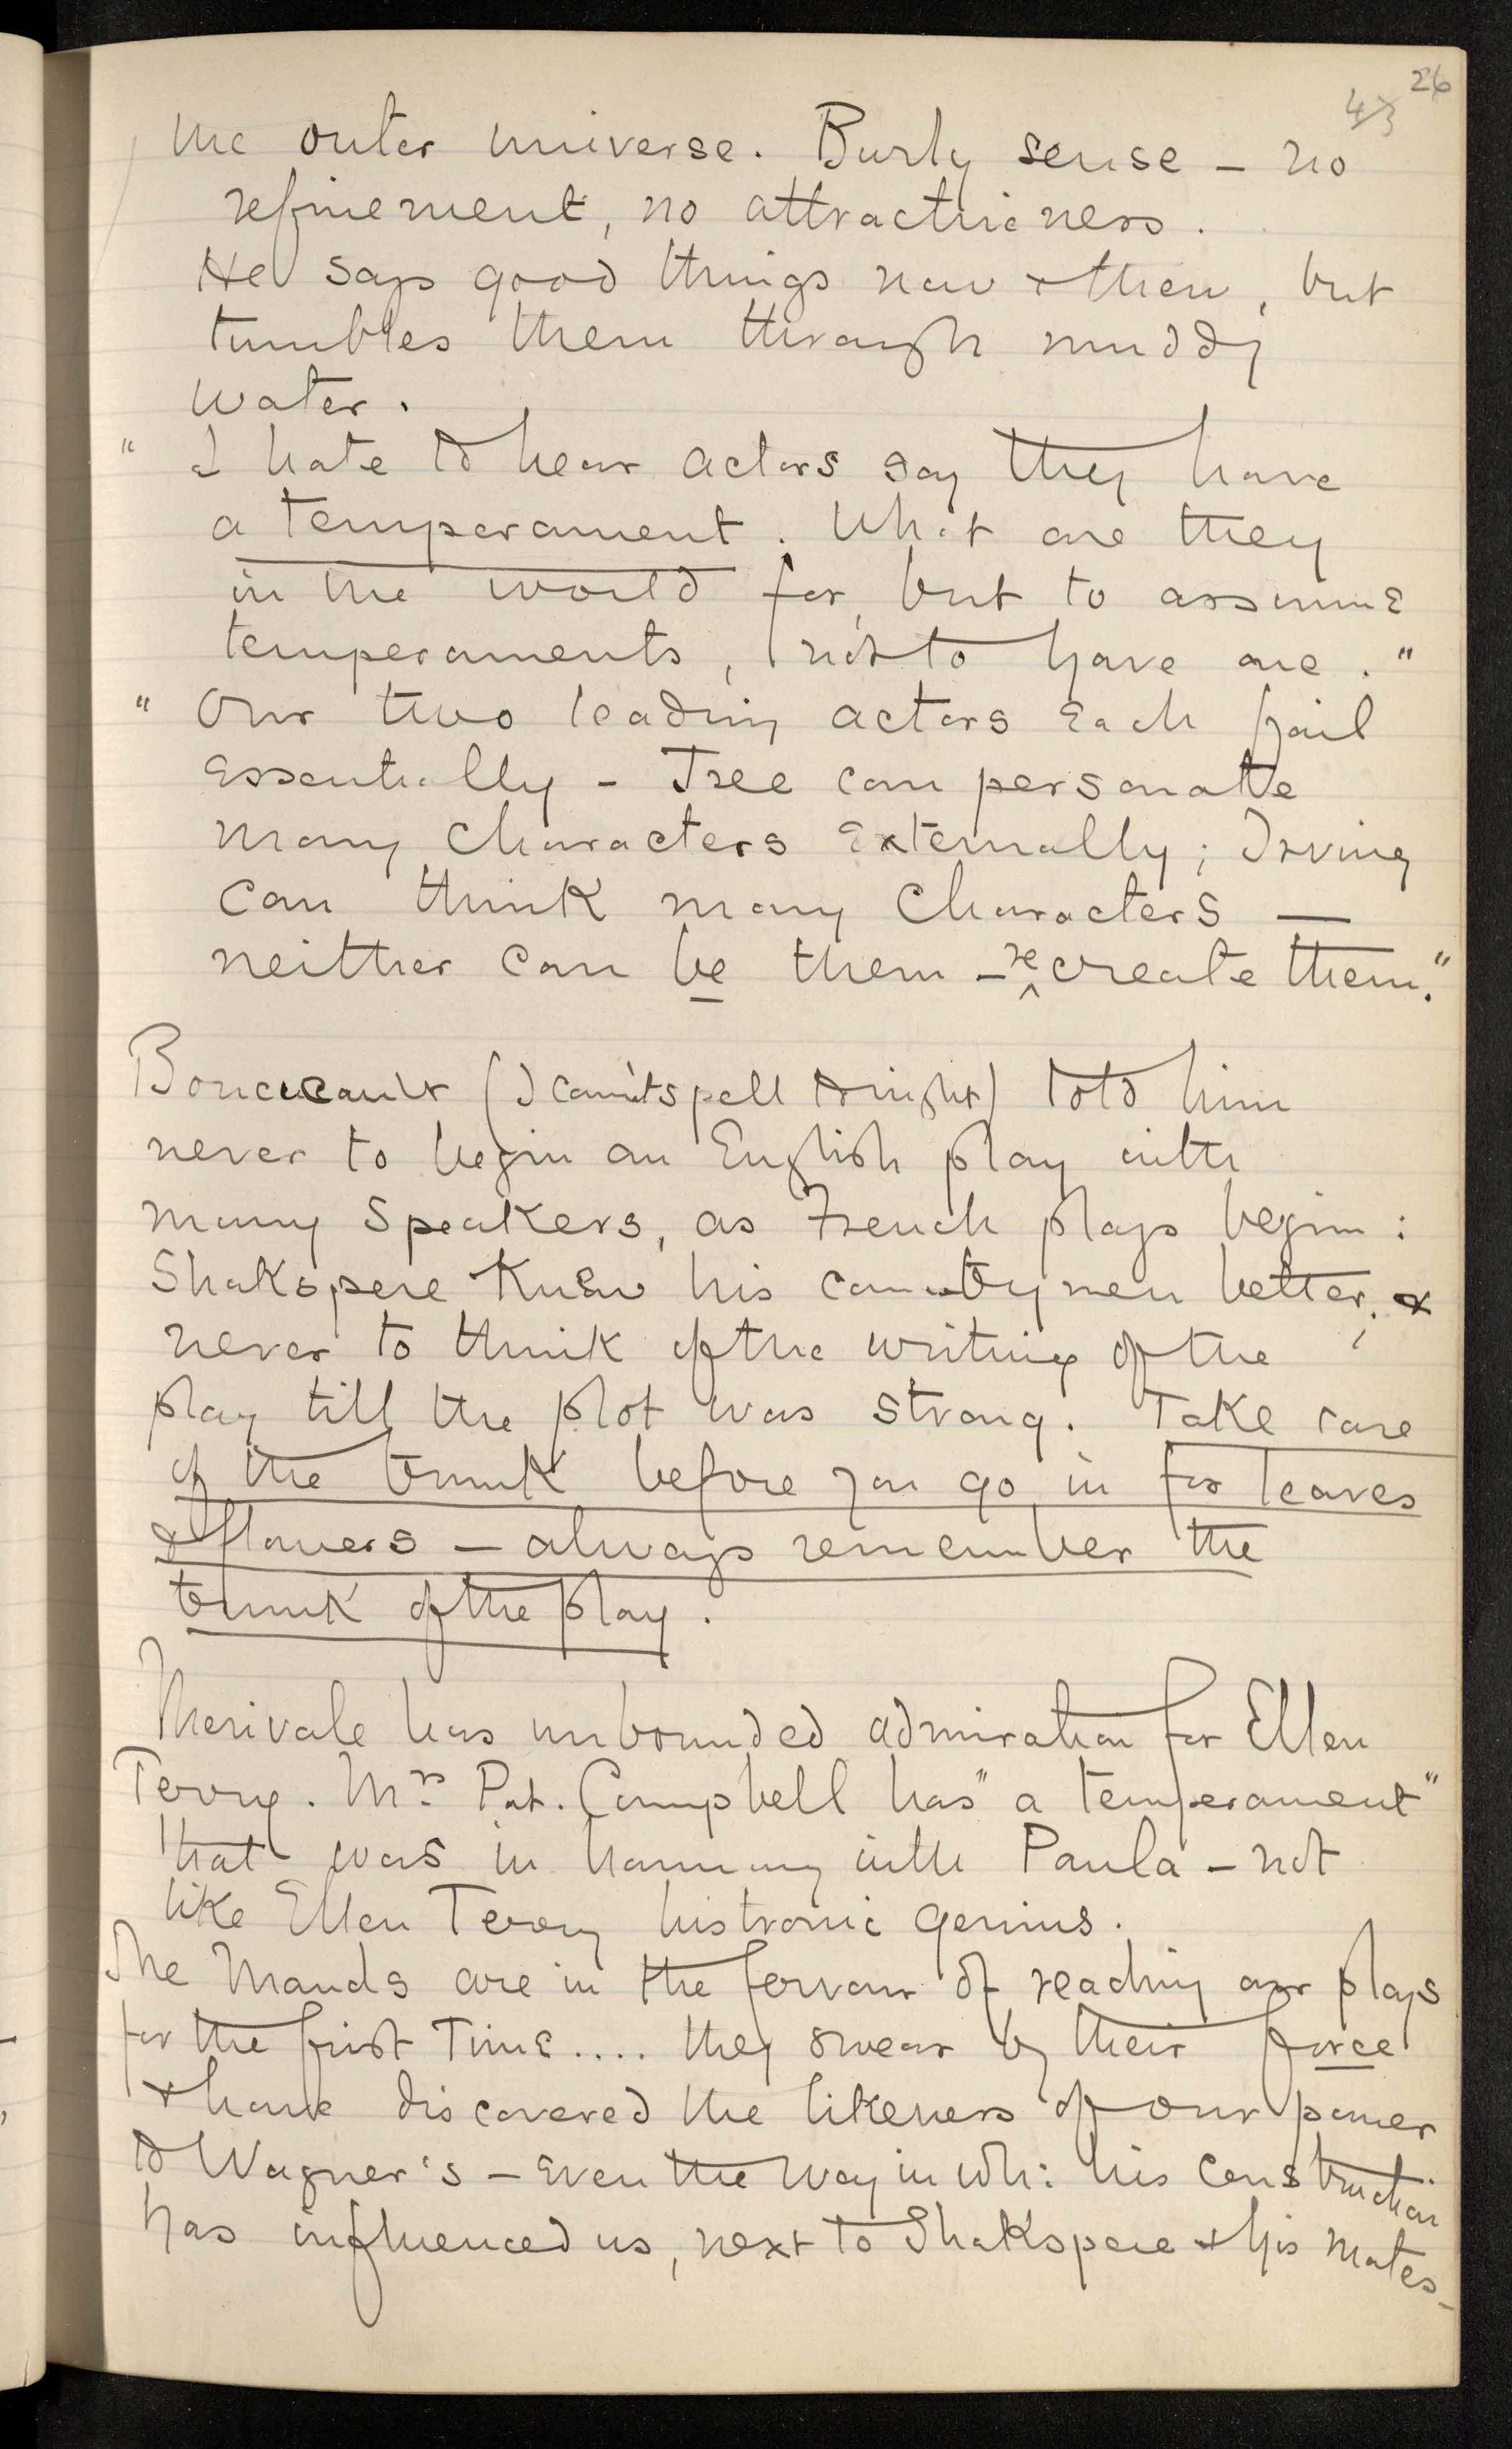 26
43
the outer universe. Burly sense – no
refinement, no attractiveness.
He says good things now & then, but
tumbles them through muddy
water.
"I hate to hear actors say they have
a temperament. What are they
in the world for, but to assume
temperaments, not to have one."
"Our two leading actors each fail
essentially – Tree can personate
many characters externally; Irving
can think many characters —
neither can be them – re^create them."
Boucicault (I can't spell tonight) told him
never to begin an English play with
many speakers, as French plays begin:
Shakspere knew his countrymen better; &
never to think of the writing of the
play till the plot was strong. Take care
of the trunk before you go in for leaves
& flowers – always remember the
trunk of the play.
Merivale has unbounded admiration for Ellen
Terry. Mrs Pat. Campbell has "a temperament"
that was in harmony with Paula – not
like Ellen Terry histronic genius.
The Mauds are in the fervour of reading our plays
for the first Time.... they swear by their force
& have discovered the likeness of our power
to Wagner's – even the way in wh: his construction
has influenced us, next to Shakspere & his mates–